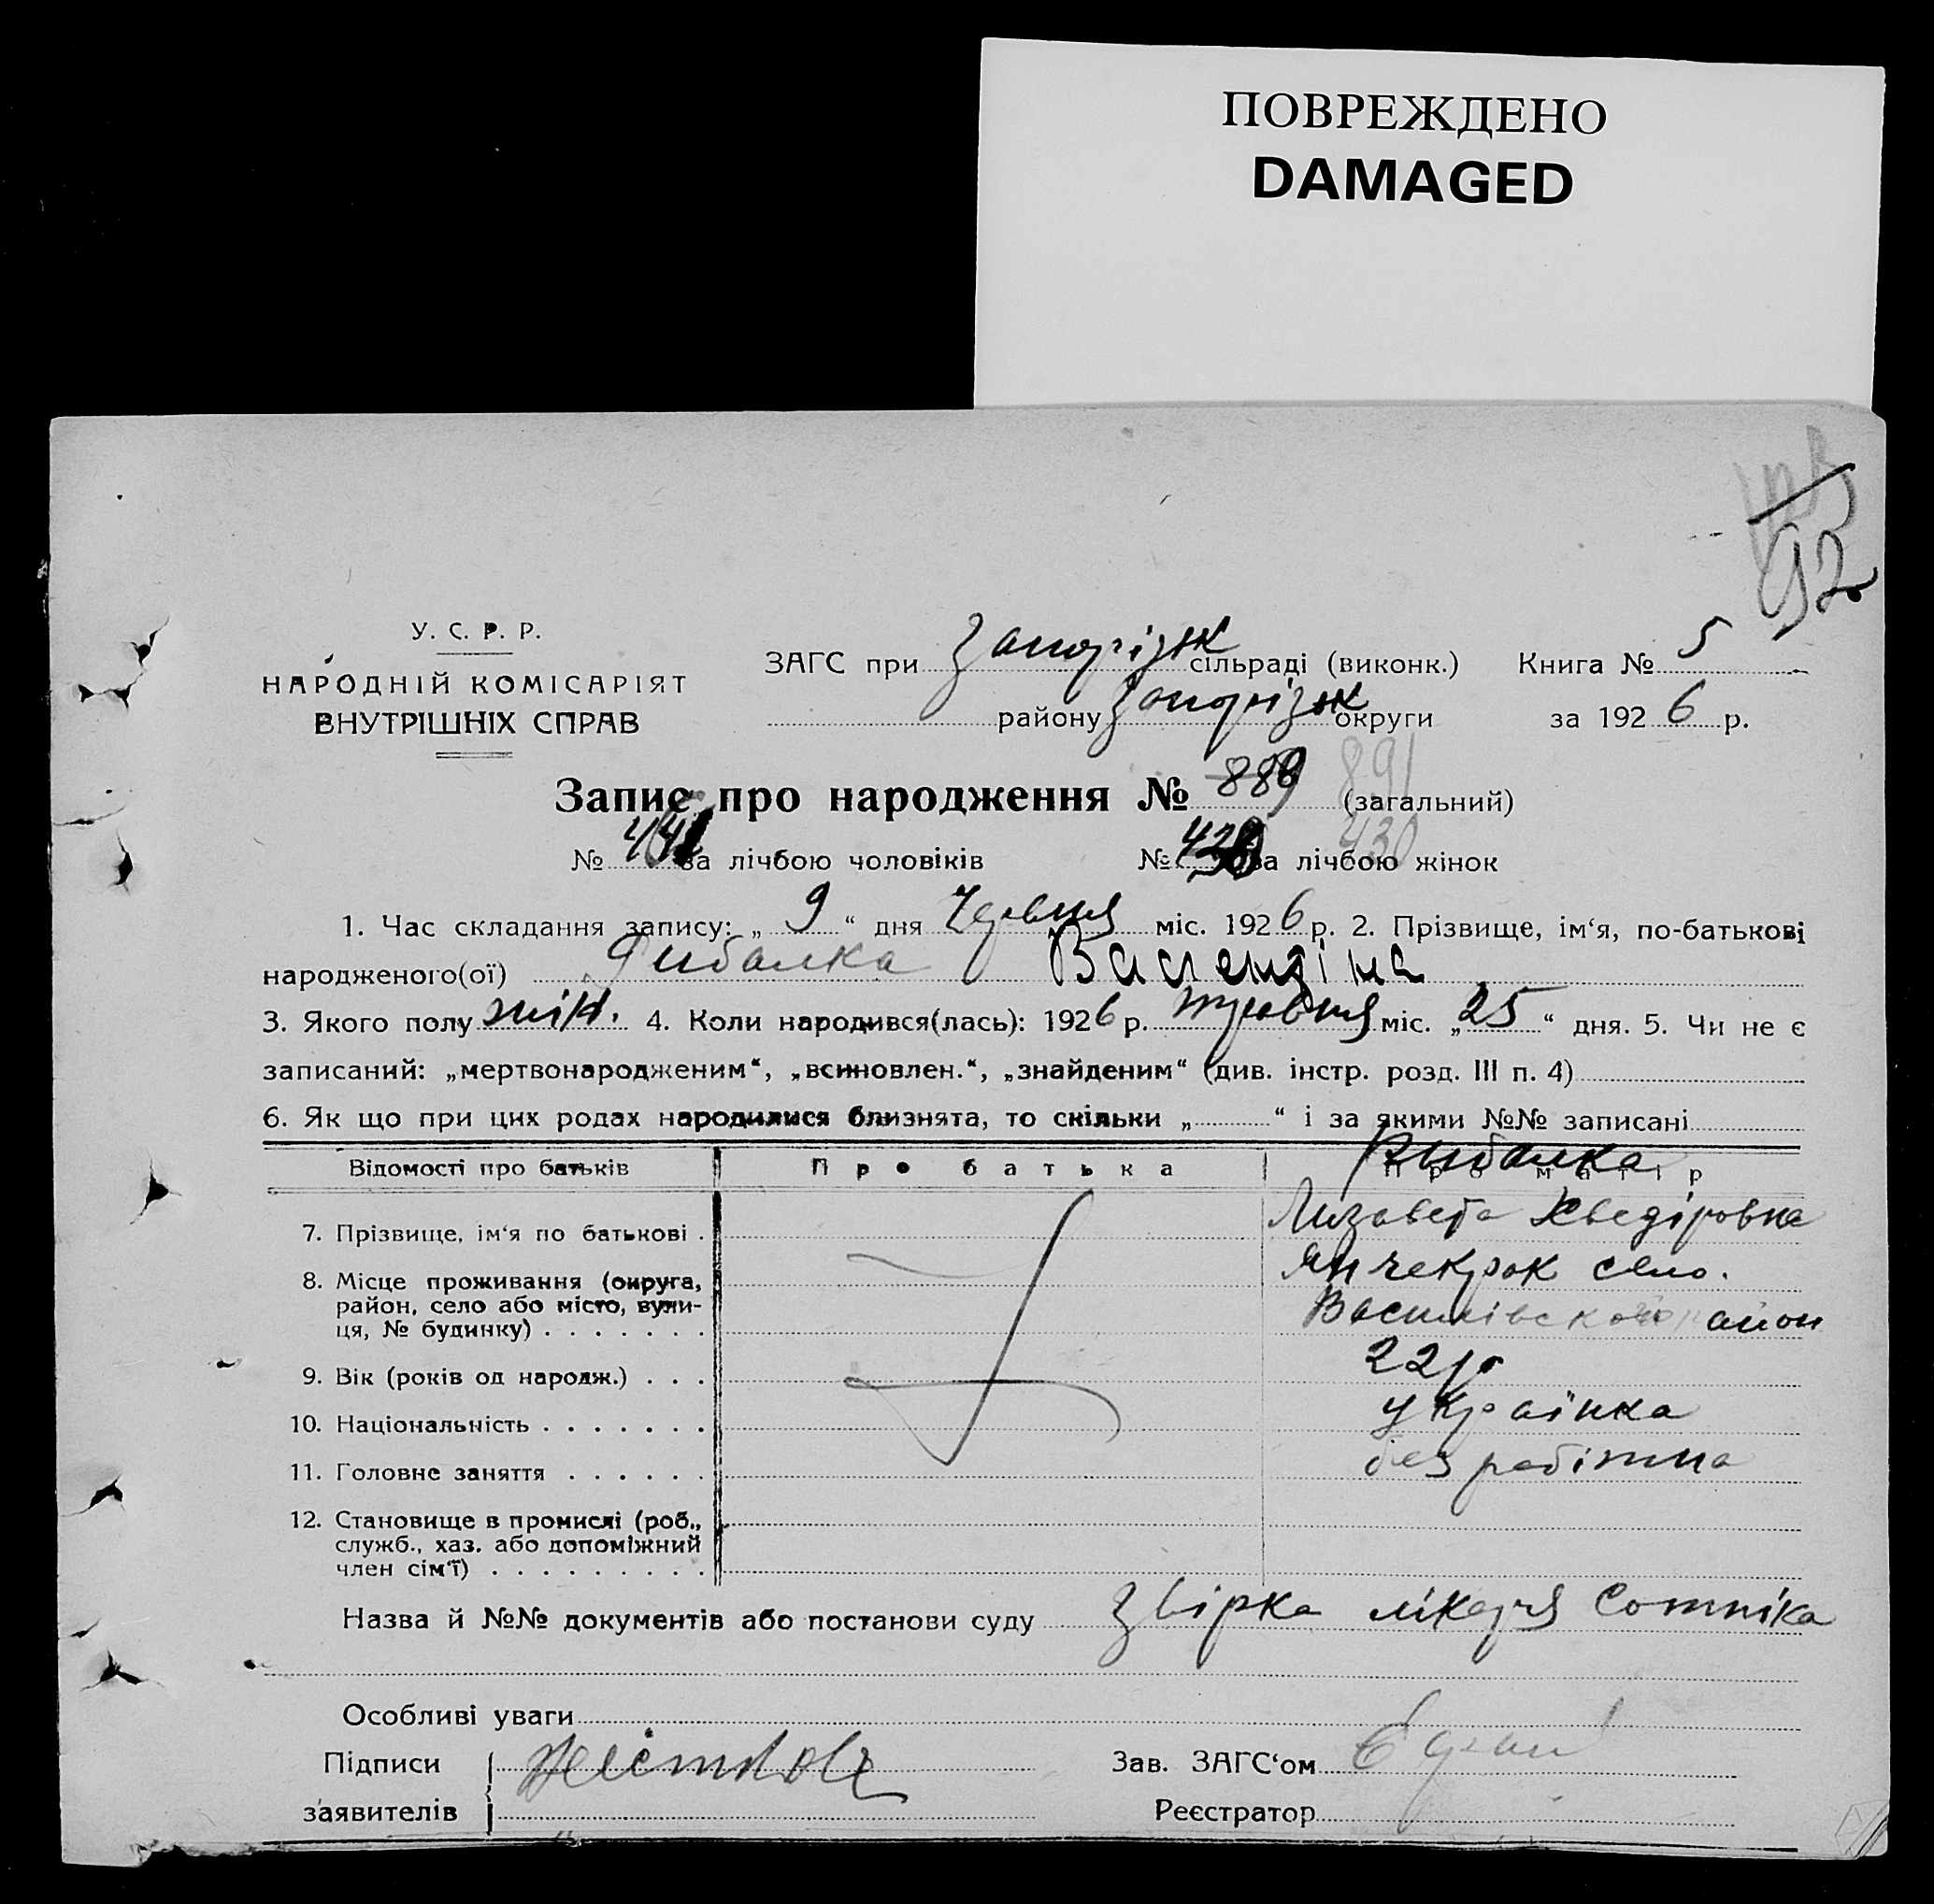 ПОВРЕЖДЕНО
DAMAGED
92
У. С. Р. Р.
НАРОДНІЙ КОМІСАРІЯТ
ВНУТРІШНІХ СПРАВ
ЗАГС при Запоріжж сільраді (виконк.) Книга № 5
району Запоріжж округи за 1926 р.
Запис про народження № 889 891 (загальний)
№ за лічбою чоловіків № 430 за лічбою жінок
1. Час складання запису: „ 9 “ дня Червня міс. 1926 р. 2. Прізвище, ім‘я, по-батькові
народженого(ої) Рибалка Васлендіна
3. Якого полу жін. 4. Коли народився(лась): 1926 р. травня міс. „25“ дня. 5. Чи не є
записаний: „мертвонародженим“, „всиновлен.“, „знайденим“ (див. інстр. розд. III п. 4)
6. Як що при цих родах народилися близнята, то скільки „ “ і за якими №№ записані
Відомості про батьків Про батька Про матір
Рыбалка
7. Прізвище, ім‘я по батькові . Лизавета Хведіровна
8. Місце проживання (округа, Янчекрак село.
район, село або місто, вули-
ця, № будинку) . . . . . . . Василівскай район
9. Вік (років од народж.) . . . 22 р
10. Національність . . . . . . . українка
11. Головне заняття . . . . . . безробітна
12. Становище в промислі (роб.,
служб., хаз. або допоміжний
член сім‘ї) . . . . . . . . .
Назва й №№ документів або постанови суду Звірка лікаря Сотніка
Особливі уваги
Підписи
заявителів
Зав. ЗАГС‘ом
Реєстратор